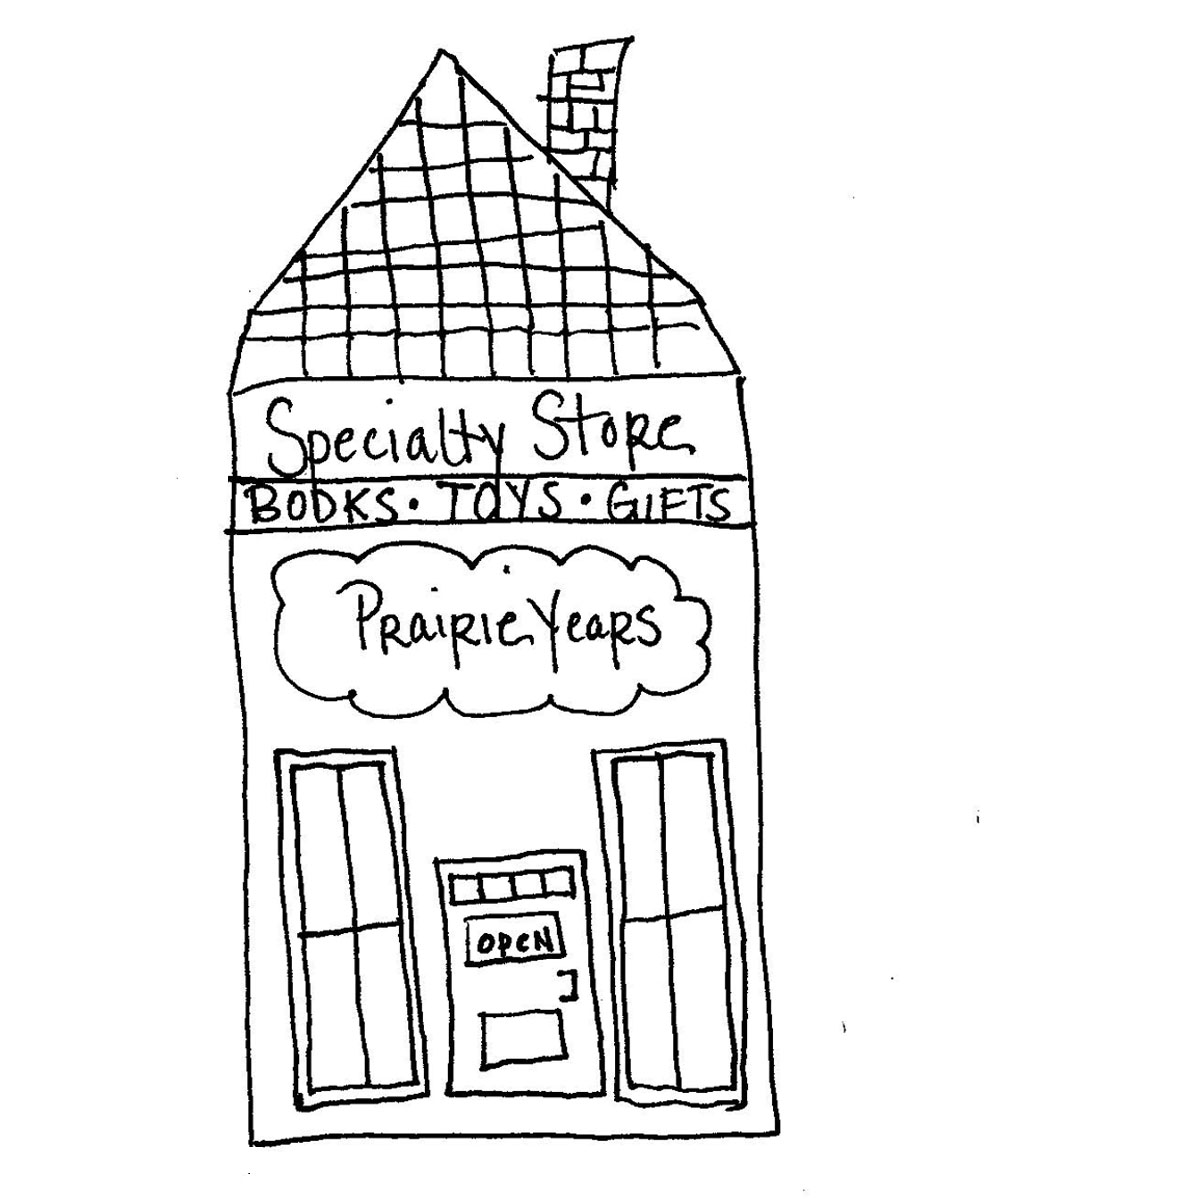 Specialty Store
BOOKS · TOYS · GIFTS
Prairie Years
OPEN